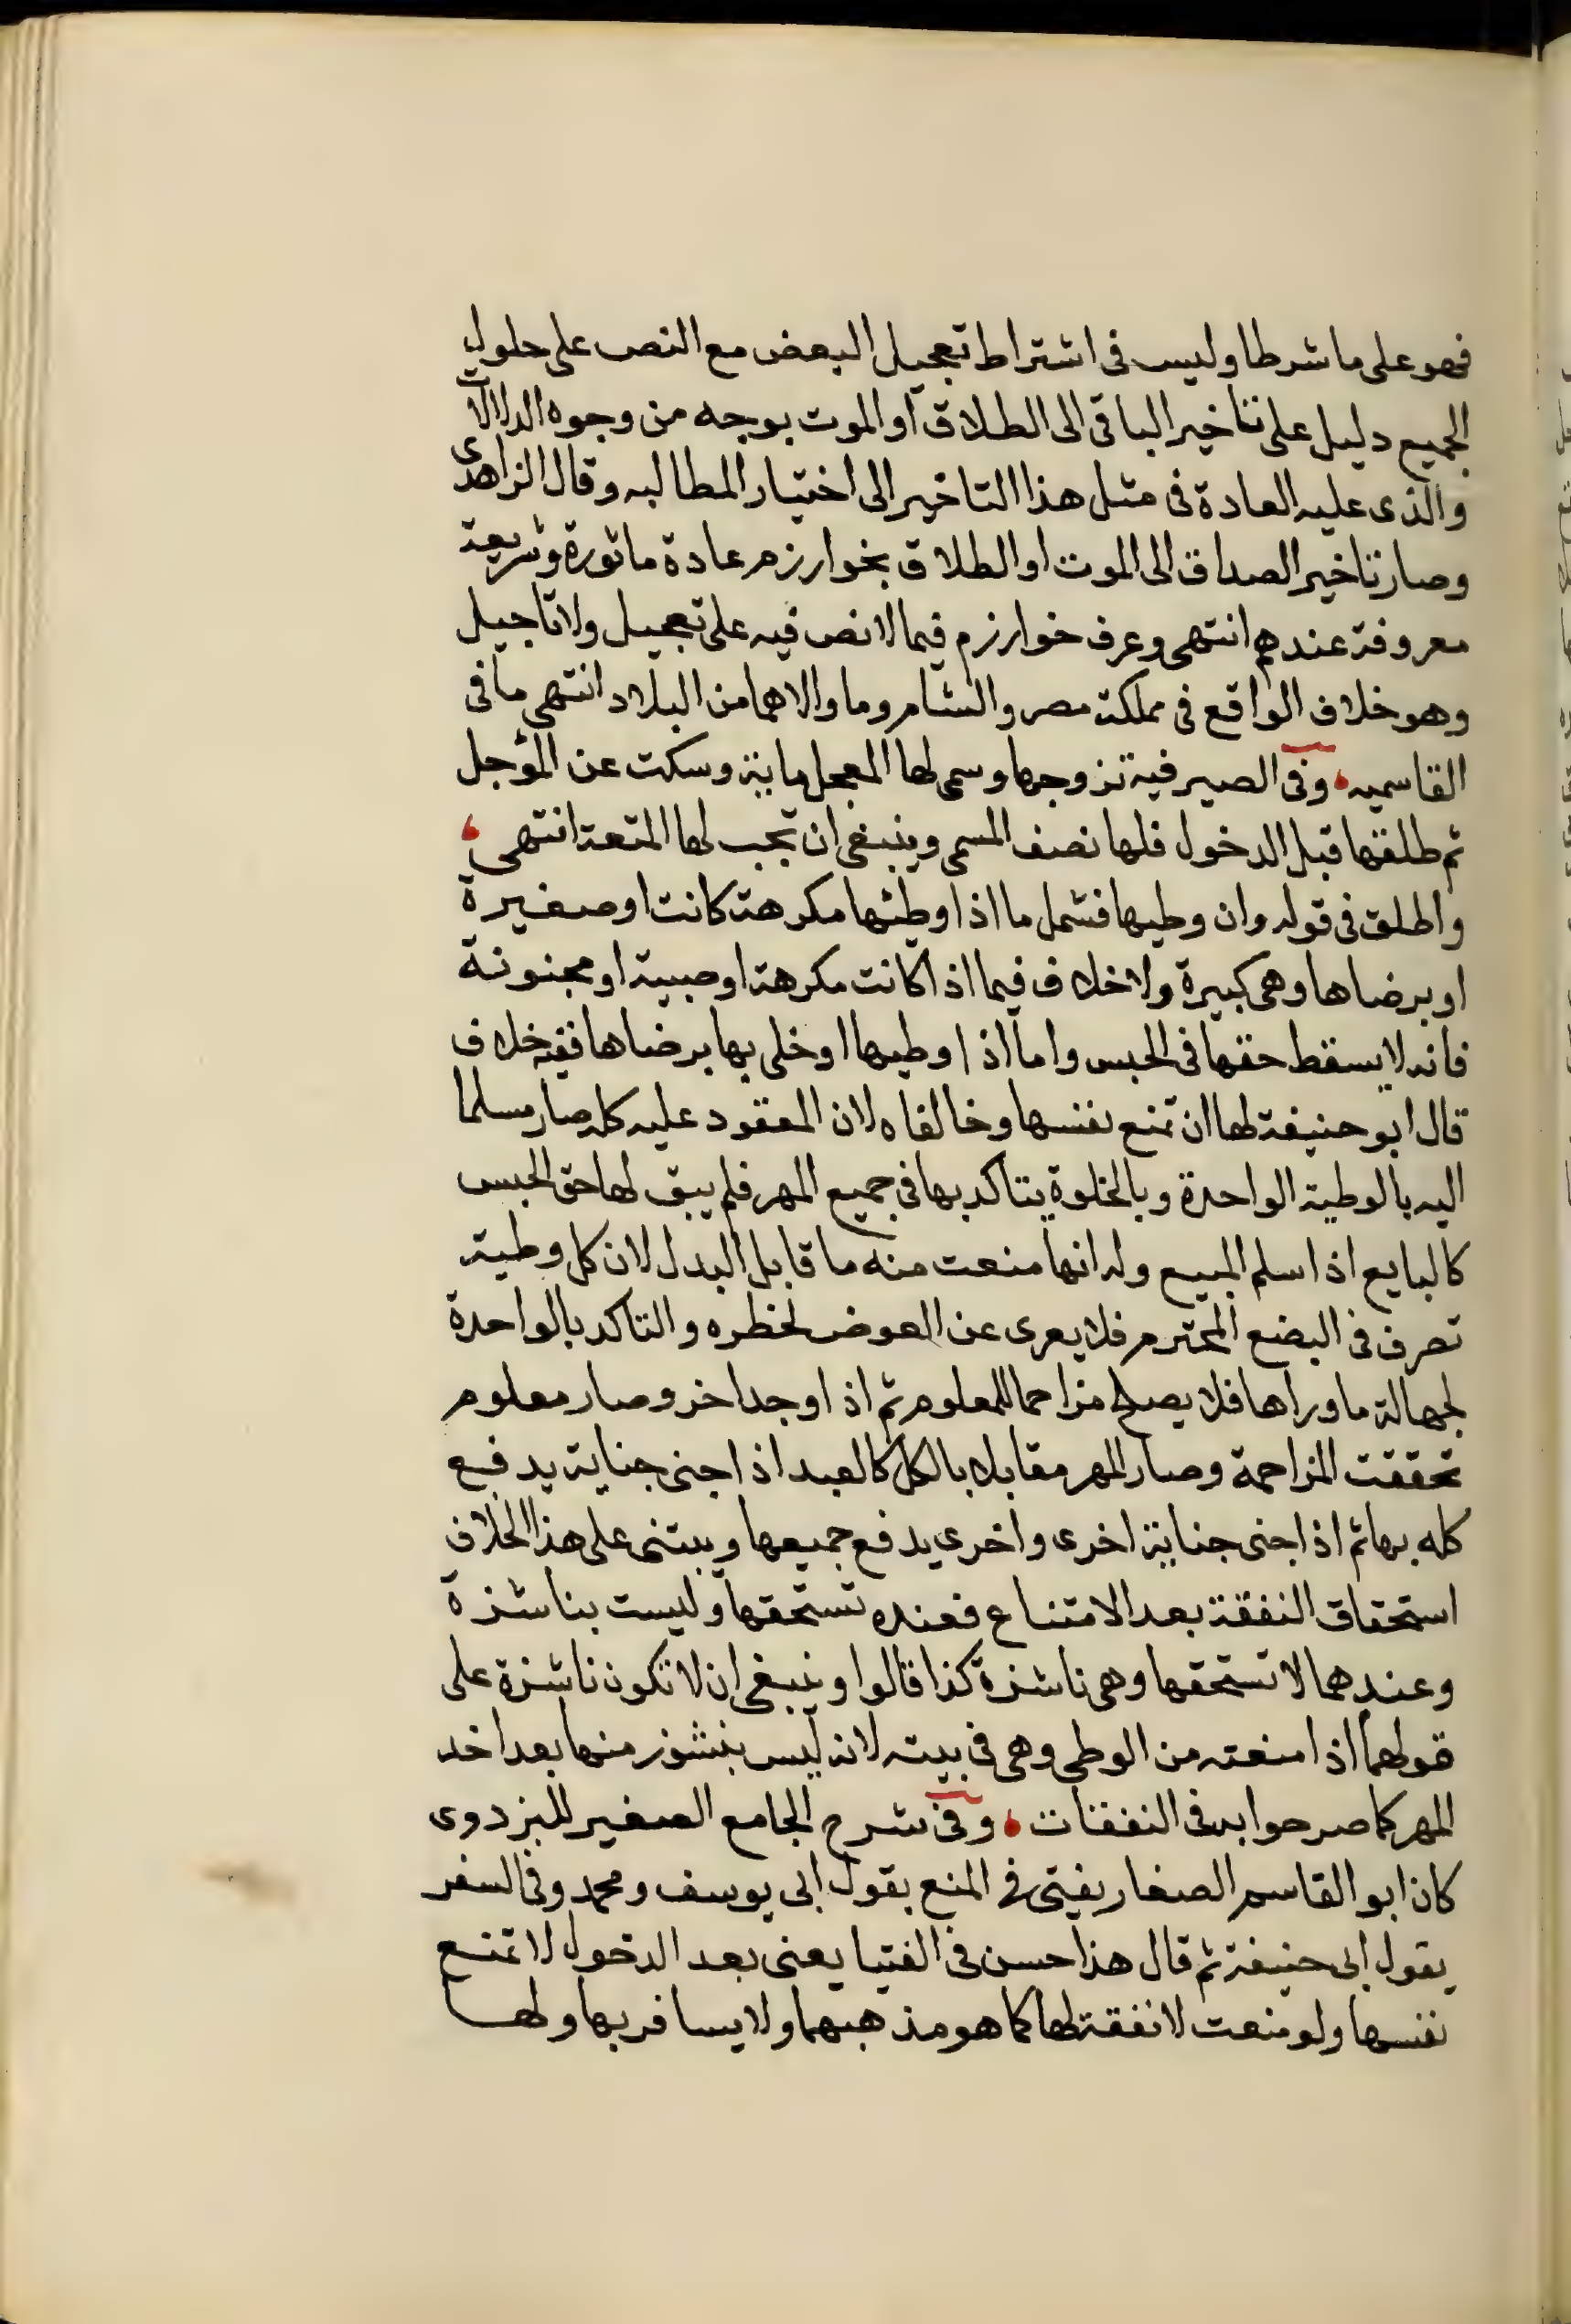 فهو على ما شرطا وليس فى اشتراط تعجيل البعض مع النص على حلول
الجميع دليل على تاخير الباقى الى الطلاق او الموت بوجه من وجوه الدلالات
والذى عليه العادة فى مثل هذا التاخير الى اختيار المطالبه وقال الزاهدى
وصار تاخير الصداق الى الموت او الطلاق بخوارزم عادة ماثورة وشريعة
معروفة عندهم انتهى وعرف خوارزم فيما لا نص فيه على تعجيل ولا تاجيل
وهو خلاف الواقع فى مملكة مصر والشام وما والاهما من البلاد انتهى ما فى
القاسميه وفى الصيرفية تزوجها وسمى لها المعجل ماية وسكت عن المؤجل
ثم طلقها قبل الدخول فلها نصف المسمى وينبغى ان تجب لها المتعة انتهى
واطلق فى قوله وان وطيها فشمل ما اذا وطئها مكرهة كانت او صغيرة
او برضاها وهى كبيرة ولا خلاف فيما اذا كانت مكرهة او صبية او مجنونة
فانه لا يسقط حقها فى الحبس واما اذا وطيها او خلى بها برضاها ففيه خلاف
قال ابو حنيفة لها ان تمنع نفسها وخالفاه لان المعقود عليه كله صار مسلما
اليه بالوطية الواحدة وبالخلوة يتاكد بها فى جميع المهر فلم يبق لها حق الحبس
كالبايع اذا سلم المبيع وله انها منعت منه ما قابل البدل لان كل وطية
تصرف فى البضع المحترم فلا يعرى عن العوض لخطره والتاكد بالواحدة
لجهالة ما وراها فلا يصلح مزاحما للمعلوم ثم اذا وجد اخر وصار معلوم
تحققت المزاحمة وصار المهر مقابلا بالكل كالعبد اذا جنى جناية يدفع
كله بها ثم اذا جنى جناية اخرى واخرى يدفع جميعها ويبتنى على هذا الخلاف
استحقاق النفقة بعد الامتناع فعنده تستحقها وليست بناشزة
وعندهما لا تستحقها وهى ناشزة كذا قالوا وينبغى ان لا تكون ناشزة على
قولهما اذا منعته من الوطى وهى فى بيته لانه ليس بنشوز منها بعد اخذ
المهر كما صرحوا به فى النفقات وفى شرح الجامع الصغير للبزدوى
كان ابو القاسم الصفار يفتى فى المنع بقول ابى يوسف ومحمد وفى السفر
بقول ابى حنيفة ثم قال هذا حسن فى الفتيا يعنى بعد الدخول لا تمنع
نفسها ولو منعت لا نفقة لها كما هو مذهبهما ولا يسافر بها ولها